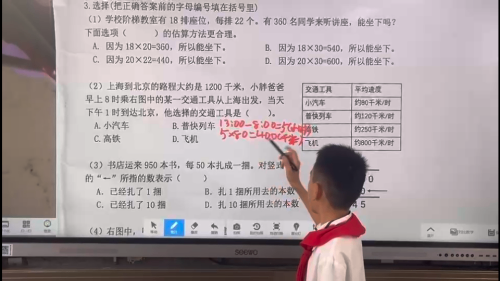 3. 选择(把正确答案前的字母编号填在括号里)
(1) 学校阶梯教室有 18 排座位，每排 22 个。有 360 名同学来听讲座，能坐下吗？
下面选项（ ）的估算方法更合理。
A. 因为 18×20=360，所以能坐下。
B. 因为 18×30=540，所以能坐下。
C. 因为 20×22=440，所以能坐下。
D. 因为 20×30=600，所以能坐下。
(2) 上海到北京的路程大约是 1200 千米，小胖爸爸
早上 8 时乘右图中的某一交通工具从上海出发，当天
下午 1 时到达北京，他选择的交通工具是（ ）。
A. 小汽车
B. 普快列车
C. 高铁
D. 飞机
13:00-8:00=5(小时)
5×80=400(千米)
交通工具 平均速度
小汽车 约80千米/时
普快列车 约120千米/时
高铁 约250千米/时
飞机 约800千米/时
(3) 书店运来 950 本书，每 50 本扎成一捆。对竖式
的“←”所指的数表示（ ）
A. 已经扎了 1 捆
B. 扎 1 捆所用去的本数
C. 已经扎了 10 捆
D. 扎 10 捆所用去的本数
(4) 右图中，